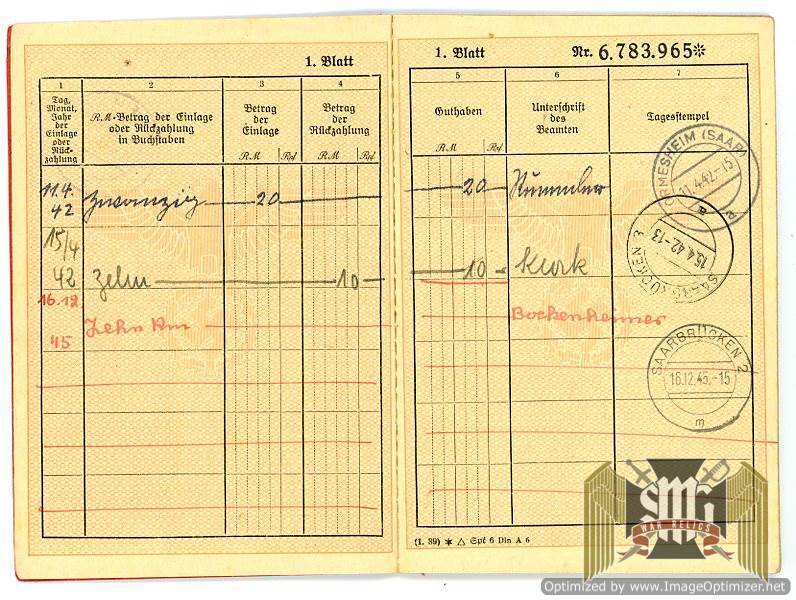 1. Blatt
1
2
3
4
Tag,
Monat,
Jahr
der
Einlage
oder
Rück-
zahlung
R.M-Betrag der Einlage
oder Rückzahlung
in Buchstaben
Betrag
der
Einlage
Betrag
der
Rückzahlung
R.M Rpf
R.M Rpf
11.4.
42
zwanzig 20
15/4
42
Zehn 10
16.12
45
Zehn Rm
1. Blatt Nr. 6.783.965*
5
6
7
Guthaben
Unterschrift
des
Beamten
Tagesstempel
R.M Rpf
20
ORMESHEIM (SAAR)
11.4.42.-15
a
10
SAARBRÜCKEN 3
15.4.42-13
Bockenheimer
SAARBRÜCKEN 2
16.12.45.-15
m
(1. 39) * △ Spk 6 Din A 6
SMG
WAR RELICS
Optimized by www.ImageOptimizer.net